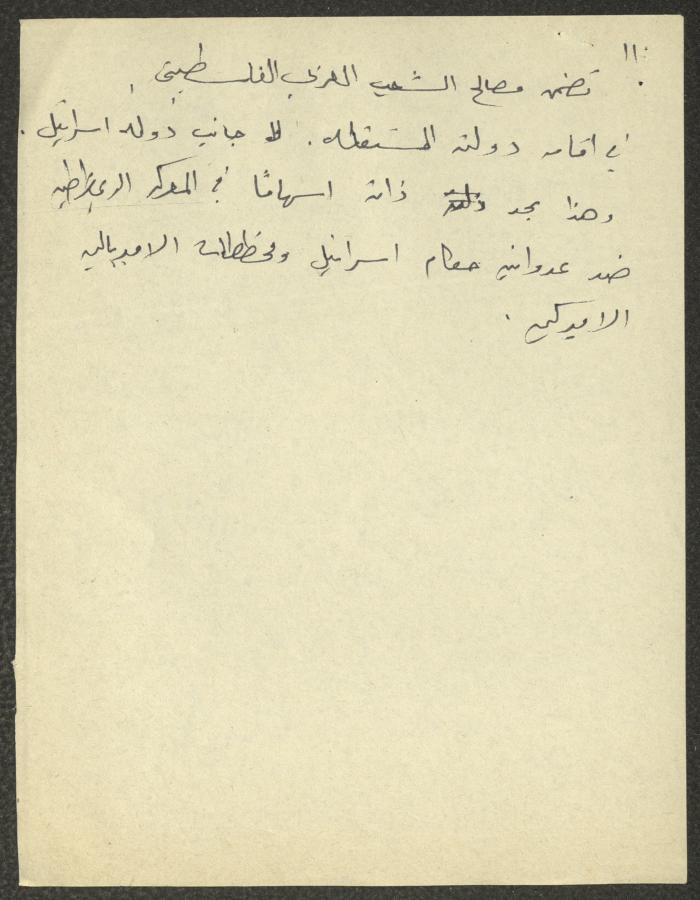 تضمن مصالح الشعب العربي الفلسطيني
في اقامة دولته المستقلة. جانب دولة اسرائيل.
وهذا بحد ذاته اسهامًا في المعركة الديمقراطية
ضد عدوانية حكام اسرائيل ومخططات الامبريالية
الاميركية.